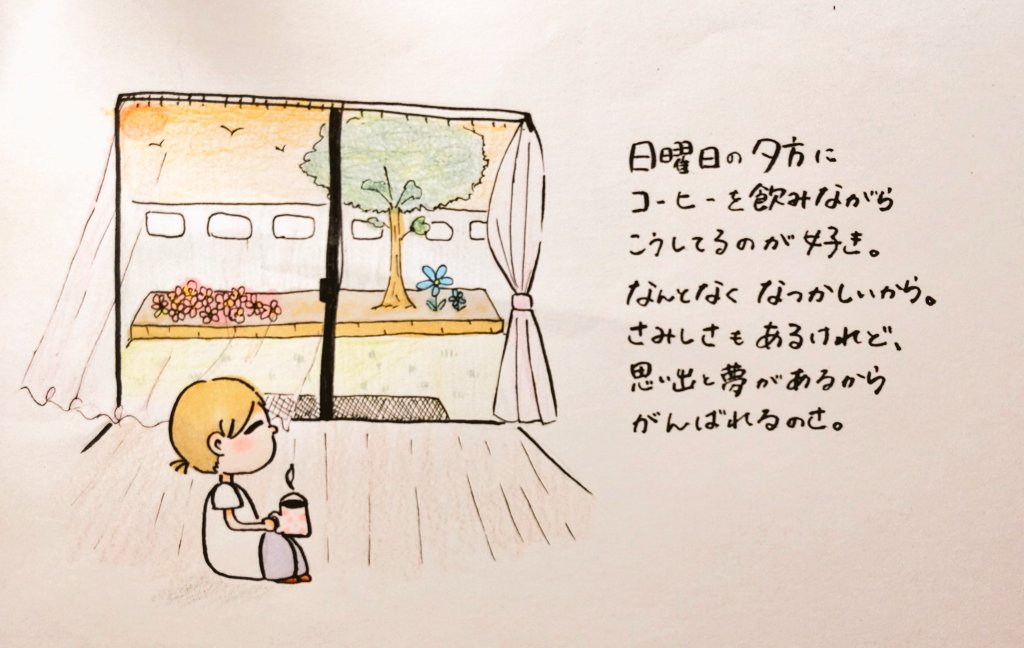 日曜日の夕方に
コーヒーを飲みながら
こうしてるのが好き。
なんとなく なつかしいから。
さみしさもあるけれど、
思い出と夢があるから
がんばれるのさ。